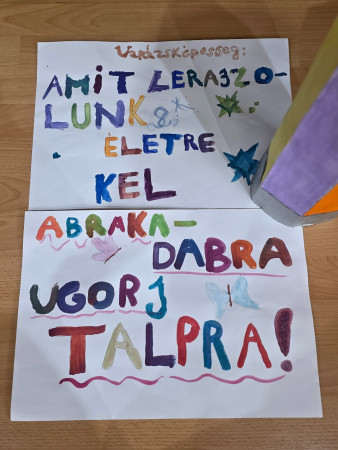 Varázsképesség:
AMIT LERAJZO-
LUNK
ÉLETRE
KEL
ABRAKA-
DABRA
UGORJ
TALPRA!